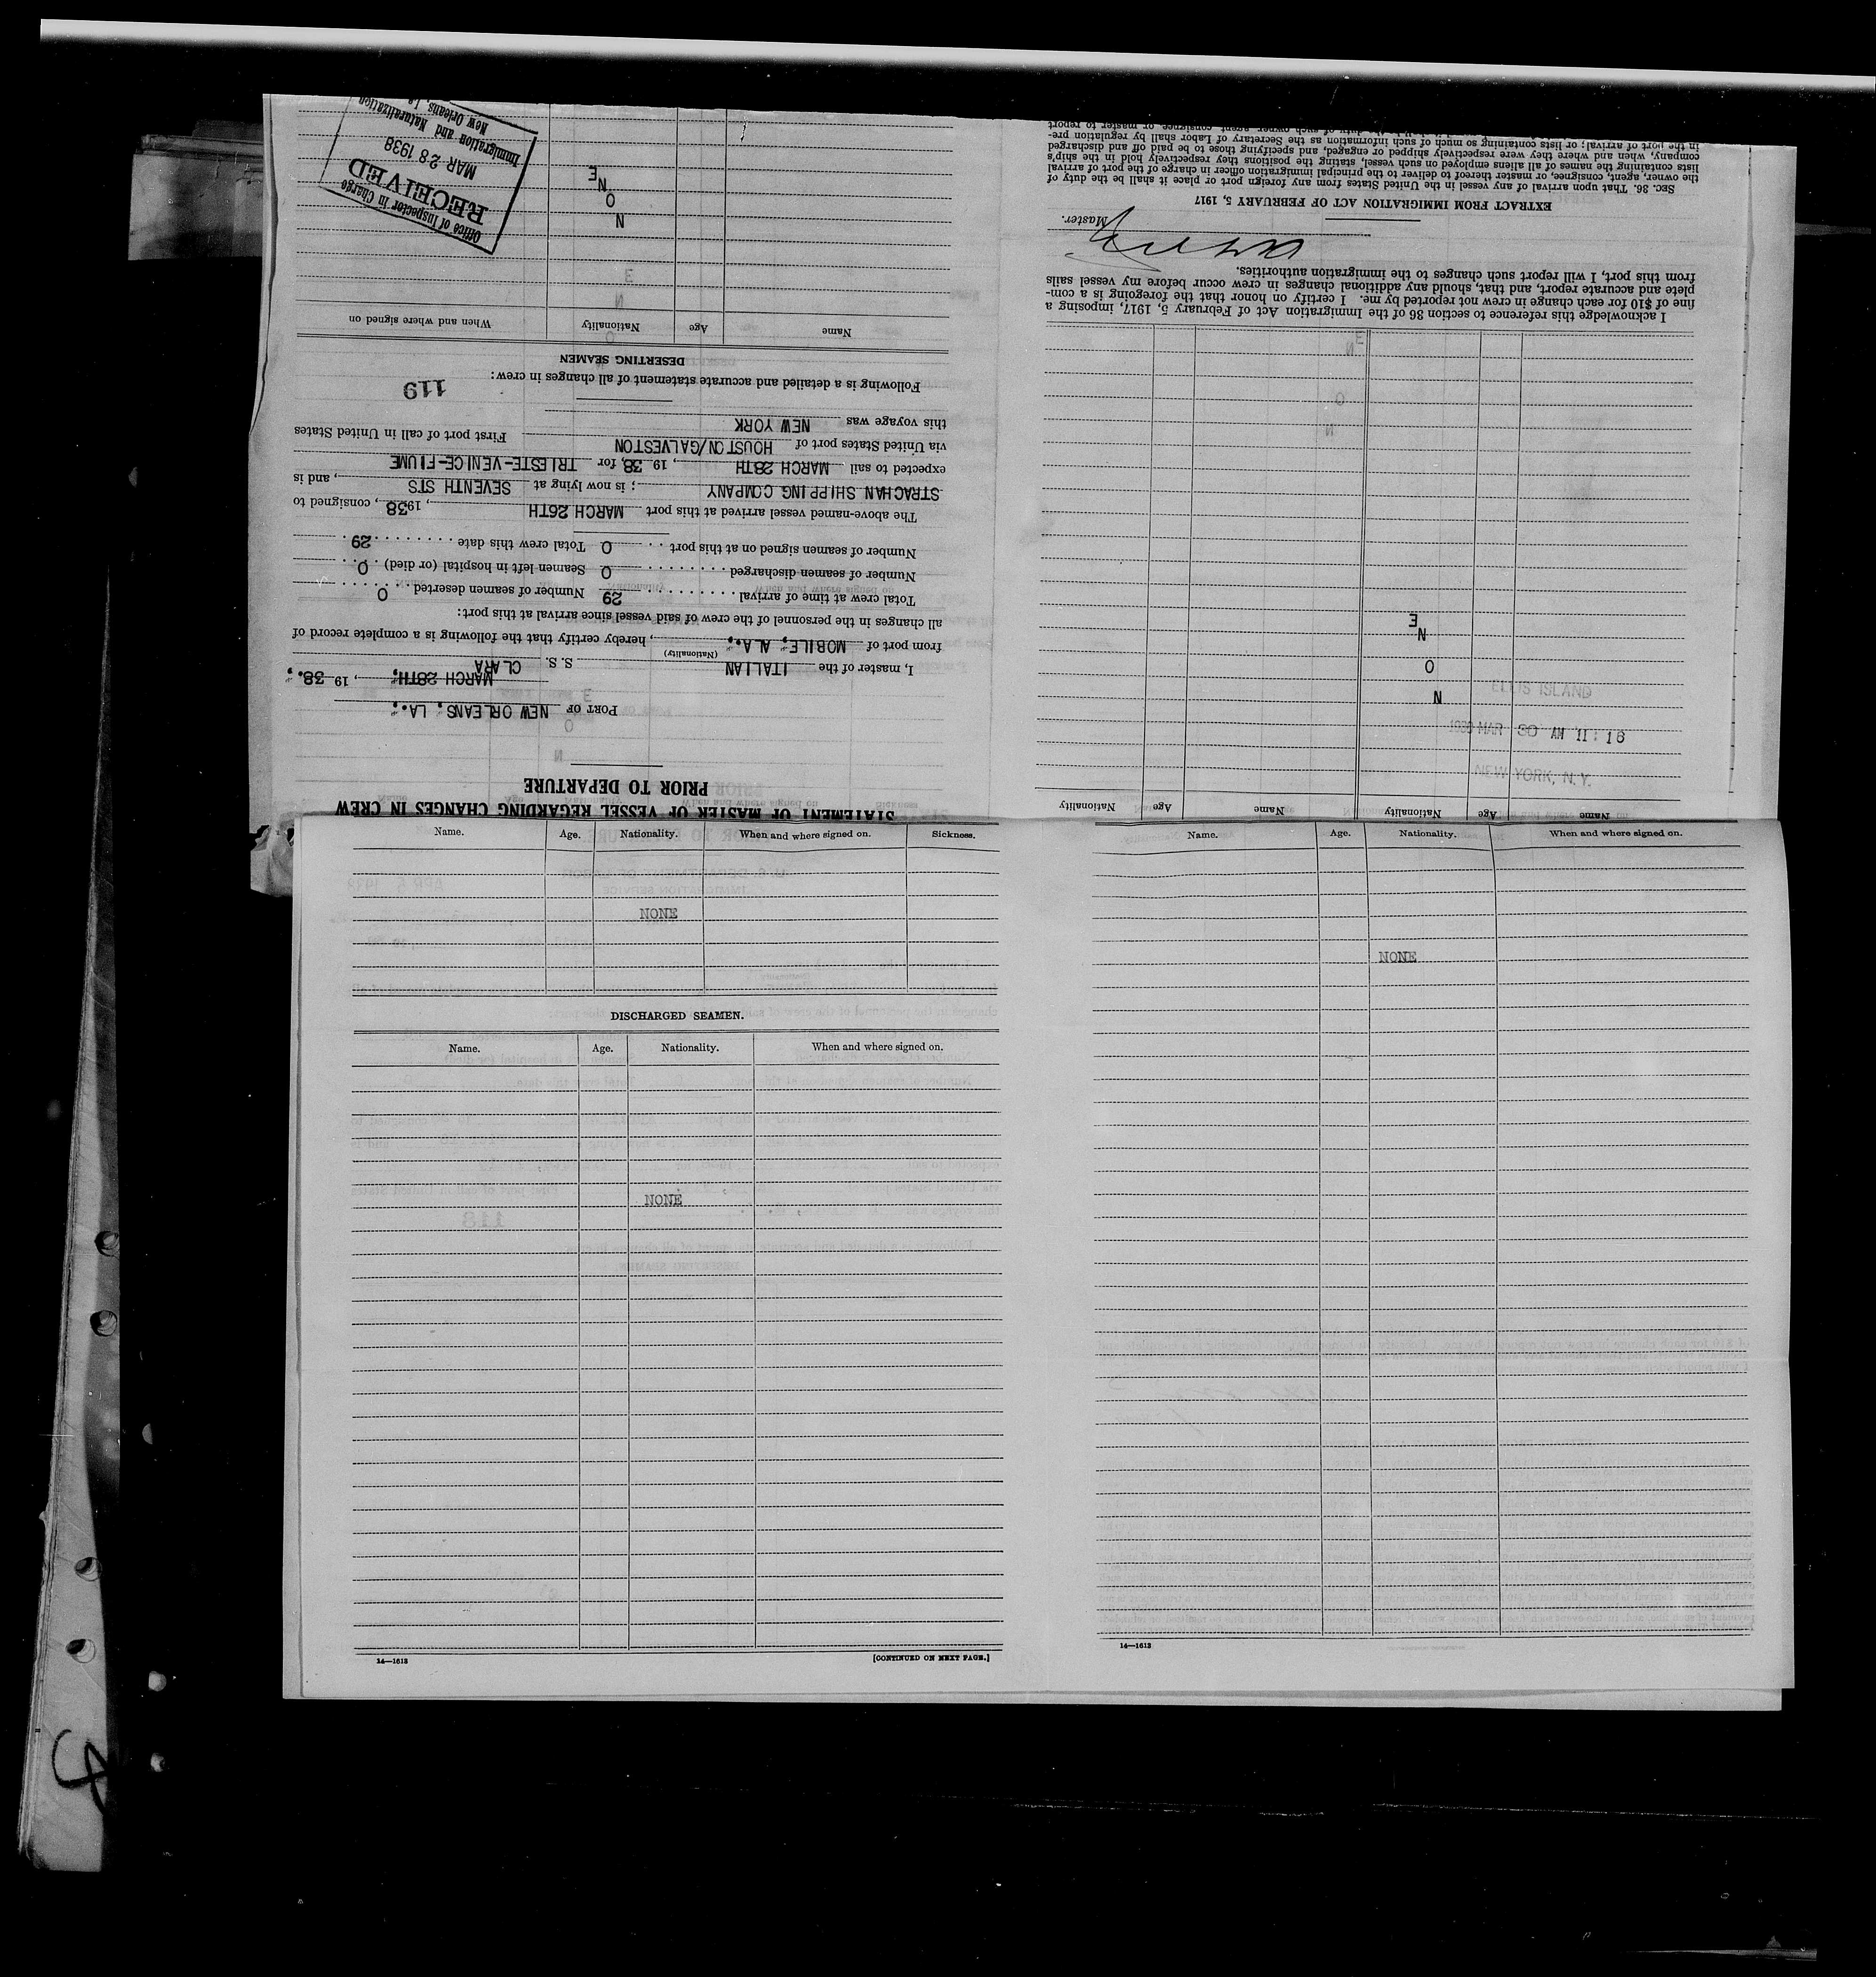 STATEMENT OF MASTER OF VESSEL REGARDING CHANGES IN CREW
PRIOR TO DEPARTURE
PORT OF NEW ORLEANS, LA.,
MARCH 28TH, , 19 38.
I, master of the ITALIAN S. S. CLARA
(Nationality)
from port of MOBILE, ALA., , hereby certify that the following is a complete record of
all changes in the personnel of the crew of said vessel since arrival at this port:
Total crew at time of arrival 29 Number of seamen deserted 0
Number of seamen discharged 0 Seamen left in hospital (or died) 0
Number of seamen signed on at this port 0 Total crew this date 29
The above-named vessel arrived at this port MARCH 26TH, 1938, consigned to
STRACHAN SHIPPING COMPANY; is now lying at SEVENTH STS, and is
expected to sail MARCH 28TH, 19 38, for TRIESTE-VENICE-FIUME
via United States port of HOUSTON/GALVESTON First port of call in United States
this voyage was NEW YORK
119
Following is a detailed and accurate statement of all changes in crew:
DESERTING SEAMEN
Name Age Nationality When and where signed on
N
O
N
E
Office of Inspector in Charge
RECEIVED
MAR 28 1938
Immigration and Naturalization
New Orleans, La.
Name Age Nationality Name Age Nationality
NEW YORK, N.Y.
MAR 30 AM 11:16
ELLIS ISLAND
N
O
N
E
I acknowledge this reference to section 36 of the Immigration Act of February 5, 1917, imposing a
fine of $10 for each change in crew not reported by me. I certify on honor that the foregoing is a com-
plete and accurate report, and that, should any additional changes in crew occur before my vessel sails
from this port, I will report such changes to the immigration authorities.
Master.
EXTRACT FROM IMMIGRATION ACT OF FEBRUARY 5, 1917
Sec. 36. That upon arrival of any vessel in the United States from any foreign port or place it shall be the duty of
the owner, agent, consignee, or master thereof to deliver to the principal immigration officer in charge of the port of arrival
lists containing the names of all aliens employed on such vessel, stating the positions they respectively hold in the ship's
company, when and where they were respectively shipped or engaged, and specifying those to be paid off and discharged
in the port of arrival; or lists containing so much of such information as the Secretary of Labor shall by regulation pre-
duty of such owner, agent, consignee, or master to report
Name. Age. Nationality. When and where signed on. Sickness.
NONE
DISCHARGED SEAMEN.
Name. Age. Nationality. When and where signed on.
NONE
14—1613 [CONTINUED ON NEXT PAGE.]
Name. Age. Nationality. When and where signed on.
NONE
14—1613